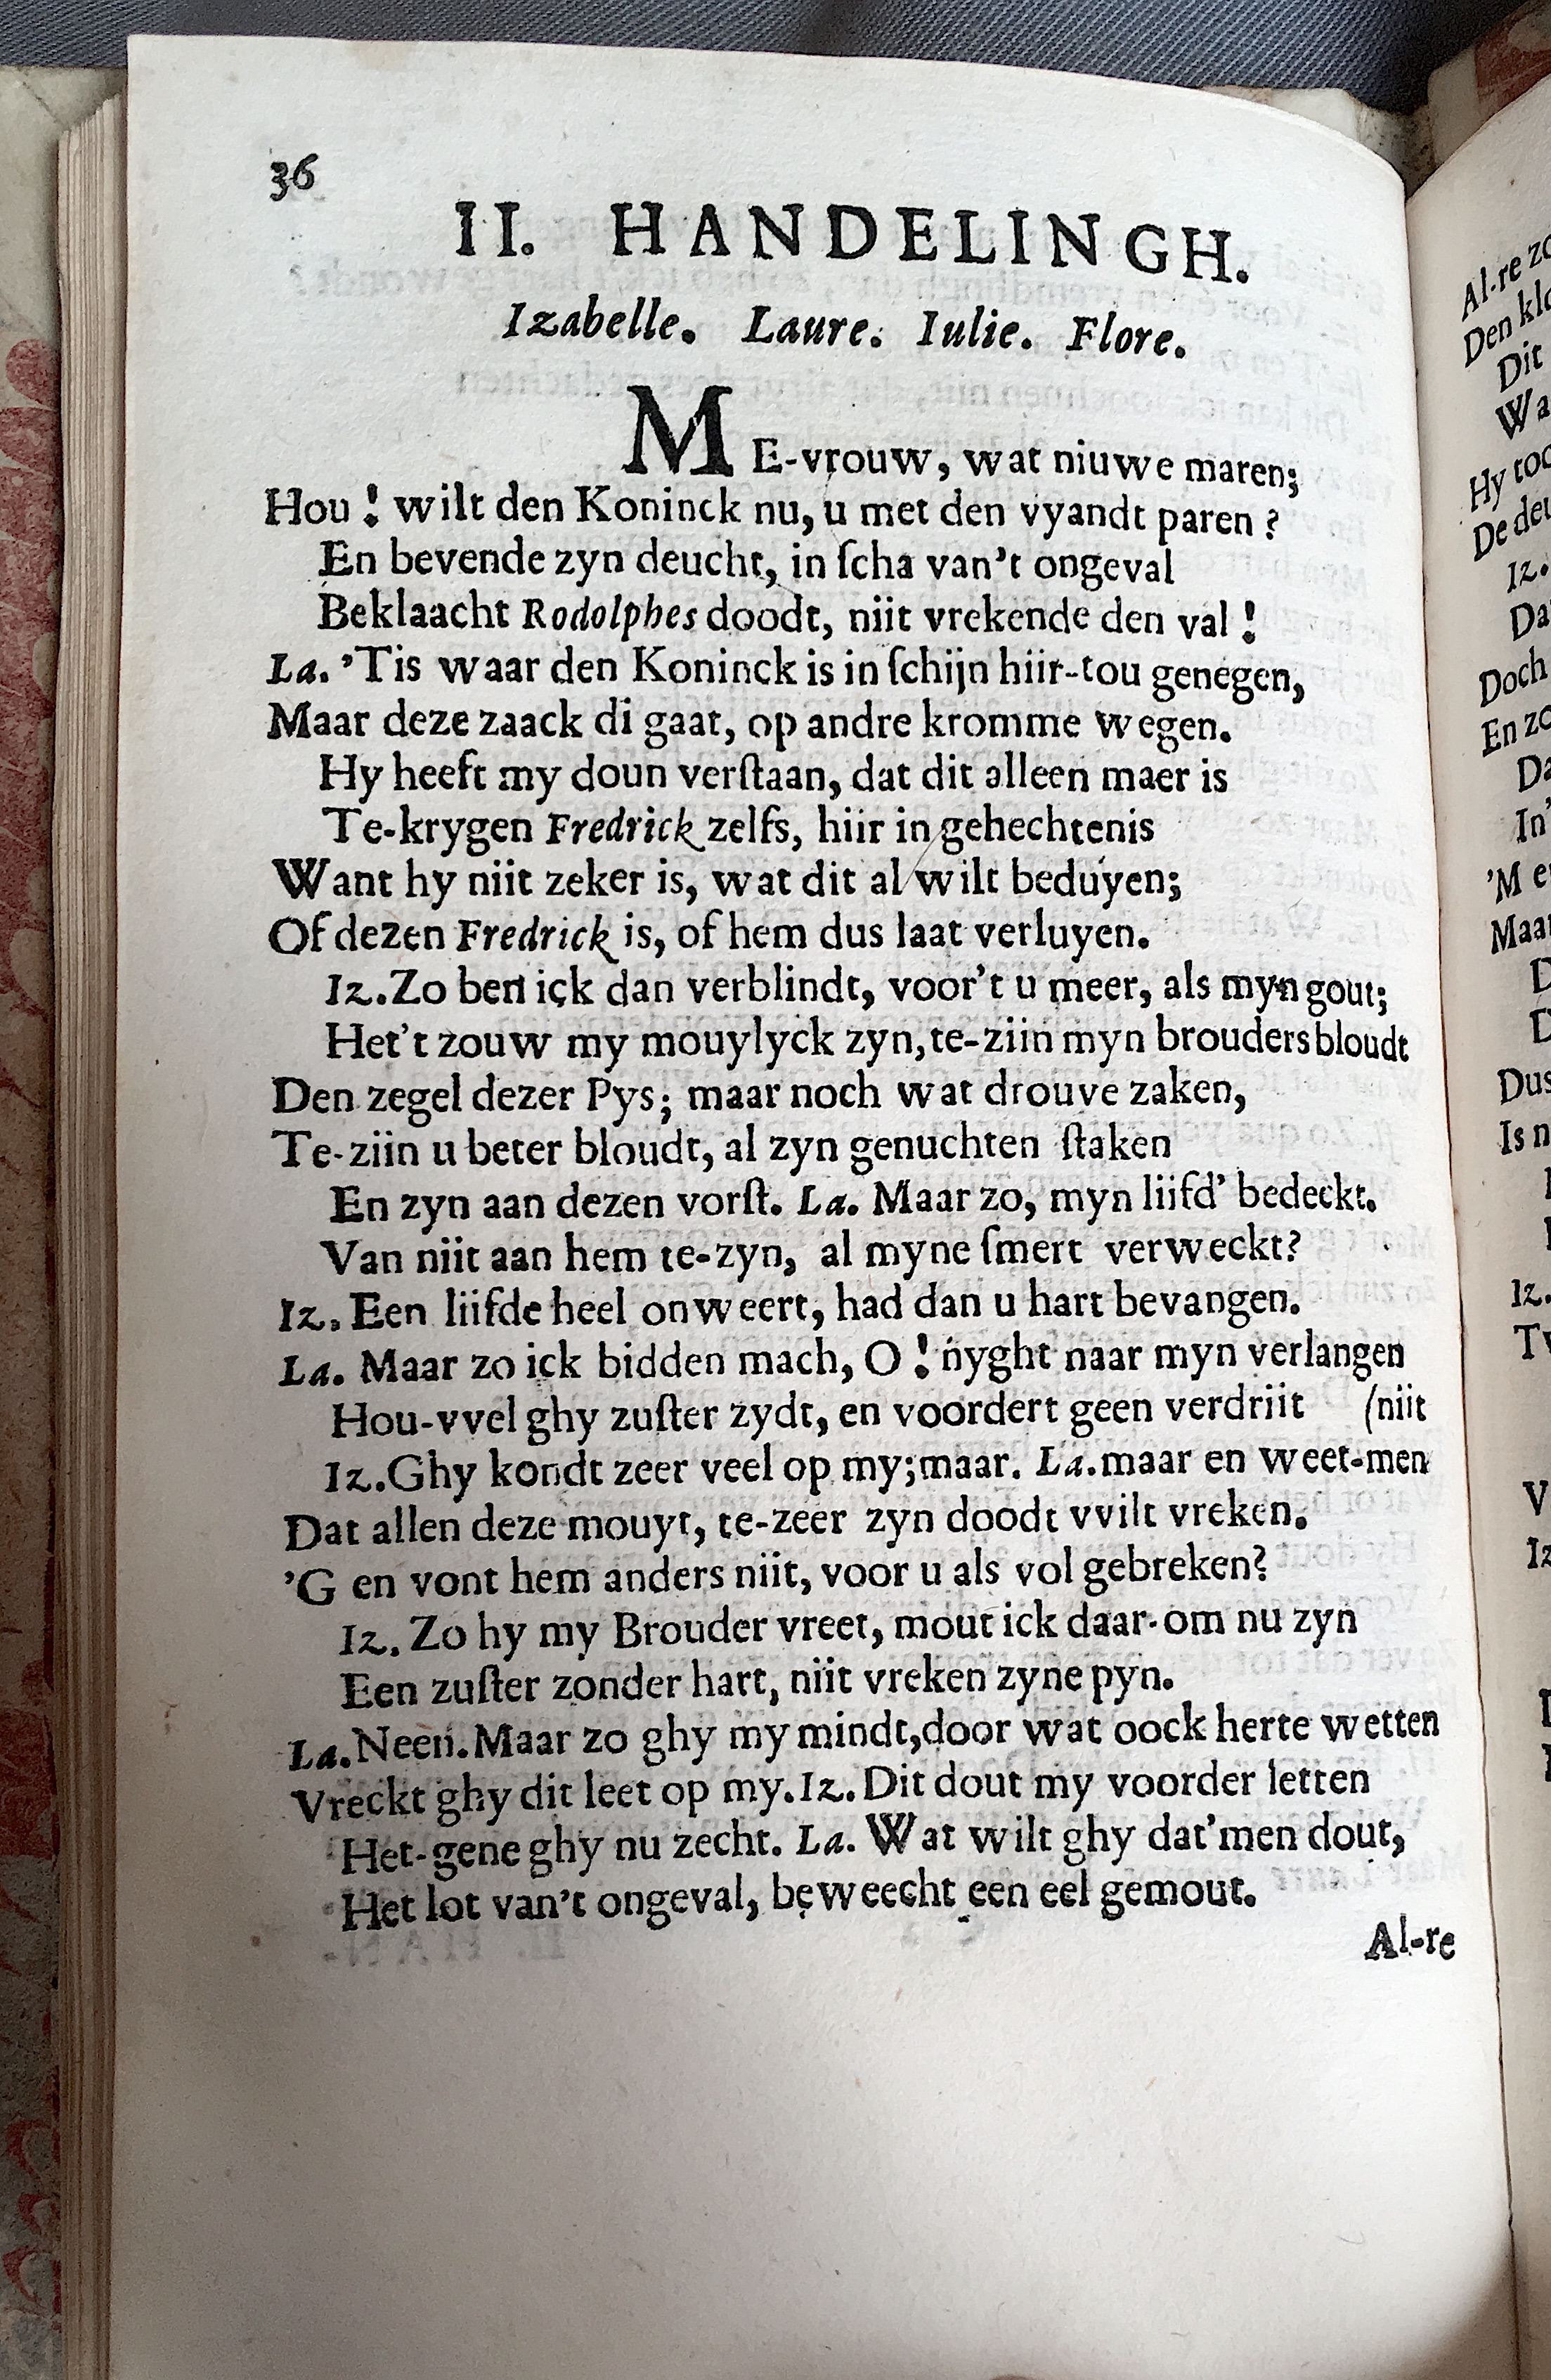 36
II. HANDELINGH.
Izabelle. Laure. Iulie. Flore.
ME-vrouw, wat niuwe maren;
Hou! wilt den Koninck nu, u met den vyandt paren?
En bevende zyn deucht, in ſcha van't ongeval
Beklaacht Rodolphes doodt, niit vrekende den val!
La. 'Tis waar den Koninck is in ſchijn hiir-tou genegen,
Maar deze zaack di gaat, op andre kromme wegen.
Hy heeft my doun verſtaan, dat dit alleen maer is
Te-krygen Fredrick zelfs, hiir in gehechtenis
Want hy niit zeker is, wat dit al wilt beduyen;
Of dezen Fredrick is, of hem dus laat verluyen.
Iz. Zo ben ick dan verblindt, voor't u meer, als myn gout;
Het't zouw my mouylyck zyn, te-ziin myn brouders bloudt
Den zegel dezer Pys; maar noch wat drouve zaken,
Te-ziin u beter bloudt, al zyn genuchten ſtaken
En zyn aan dezen vorſt. La. Maar zo, myn liifd' bedeckt.
Van niit aan hem te-zyn, al myne ſmert verweckt?
Iz. Een liifde heel onweert, had dan u hart bevangen.
La. Maar zo ick bidden mach, O! nyght naar myn verlangen
Hou-vvel ghy zuſter zydt, en voordert geen verdriit (niit
Iz. Ghy kondt zeer veel op my; maar. La. maar en weet-men
Dat allen deze mouyt, te-zeer zyn doodt vvilt vreken.
'G en vont hem anders niit, voor u als vol gebreken?
Iz. Zo hy my Brouder vreet, mout ick daar-om nu zyn
Een zuſter zonder hart, niit vreken zyne pyn.
La. Neen. Maar zo ghy my mindt, door wat oock herte wetten
Vreckt ghy dit leet op my. Iz. Dit dout my voorder letten
Het-gene ghy nu zecht. La. Wat wilt ghy dat'men dout,
Het lot van't ongeval, beweecht een eel gemout.
Al-re